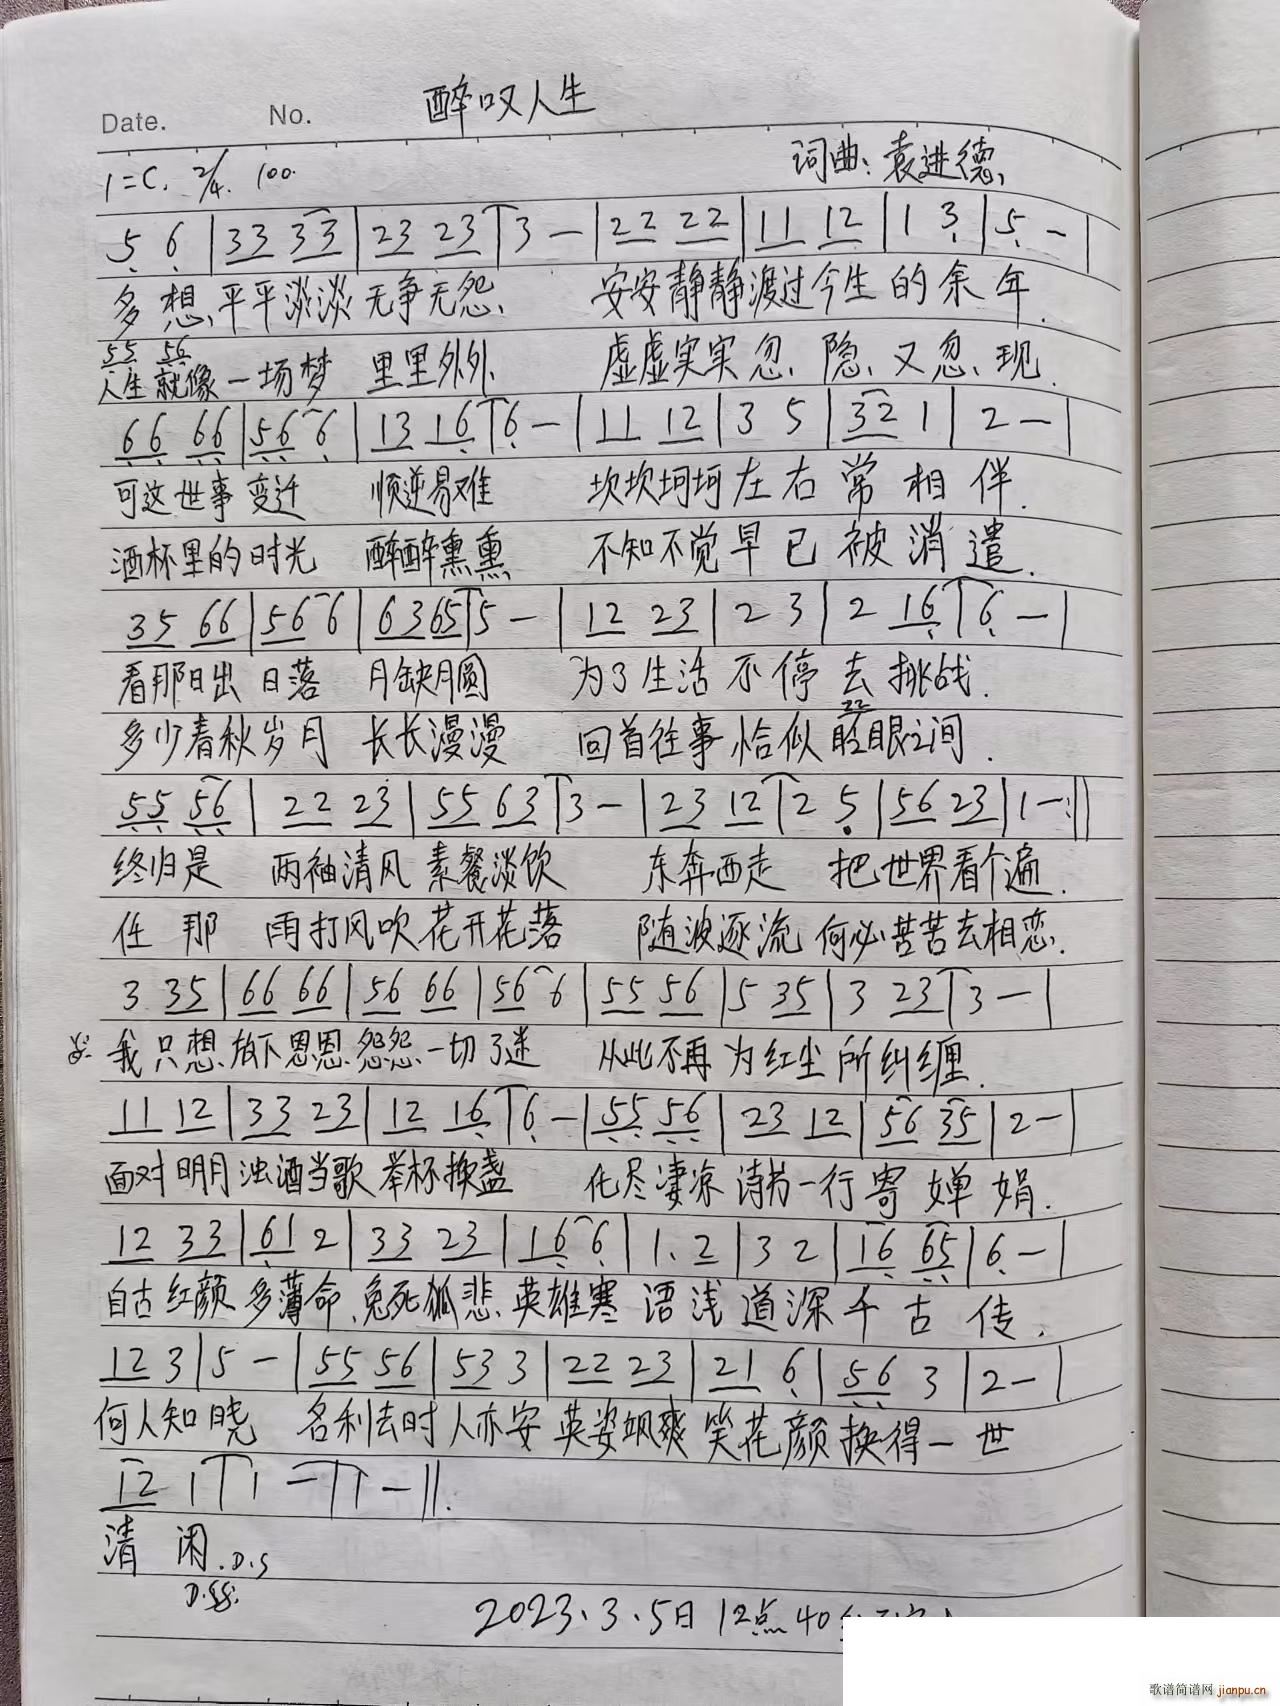 醉叹人生
Date. No.
词曲:袁进德
1=C. 2/4. 100.
5 6 | 33 33 | 23 23 | 3 — | 22 22 | 11 12 | 1 3 | 5 — |
多想,平平淡淡无争无怨、 安安静静渡过今生的余年.
55 56
人生就像一场梦 里里外外、 虚虚实实忽、隐、又忽、现.
66 66 | 56 6 | 13 16 | 6 — | 11 12 | 3 5 | 32 1 | 2 — |
可这世事变迁 顺逆易难 坎坎坷坷左右常相伴.
酒杯里的时光 醉醉熏熏 不知不觉早已被消遣.
35 66 | 56 6 | 6365 | 5 — | 12 23 | 2 3 | 2 16 | 6 — |
看那日出日落 月缺月圆 为了生活不停去挑战.
22
多少春秋岁月 长长漫漫 回首往事恰似眨眼之间.
55 56 | 22 23 | 55 63 | 3 — | 23 12 | 2 5 | 56 23 | 1 — :||
终归是 两袖清风素餐淡饮 东奔西走 把世界看个遍.
任那 雨打风吹花开花落 随波逐流何必苦苦去相恋.
3 35 | 66 66 | 56 66 | 56 6 | 55 56 | 5 35 | 3 23 | 3 — |
我只想放下恩恩怨怨一切了迷 从此不再为红尘所纠缠.
11 12 | 33 23 | 12 16 | 6 — | 55 56 | 23 12 | 56 35 | 2 — |
面对明月浊酒当歌举杯换盏 化尽凄凉诗书一行寄婵娟.
12 33 | 61 2 | 33 23 | 16 6 | 1. 2 | 3 2 | 16 65 | 6 — |
自古红颜多薄命、兔死狐悲、英雄寒 语浅道深千古传.
12 3 | 5 — | 55 56 | 53 3 | 22 23 | 21 6 | 56 3 | 2 — |
何人知晓 名利去时人亦安英姿飒爽笑花颜换得一世
12 1 | 1 — | 1 — ||.
清闲.D.S
2023.3.5日12点40
歌谱简谱网 jianpu.cn